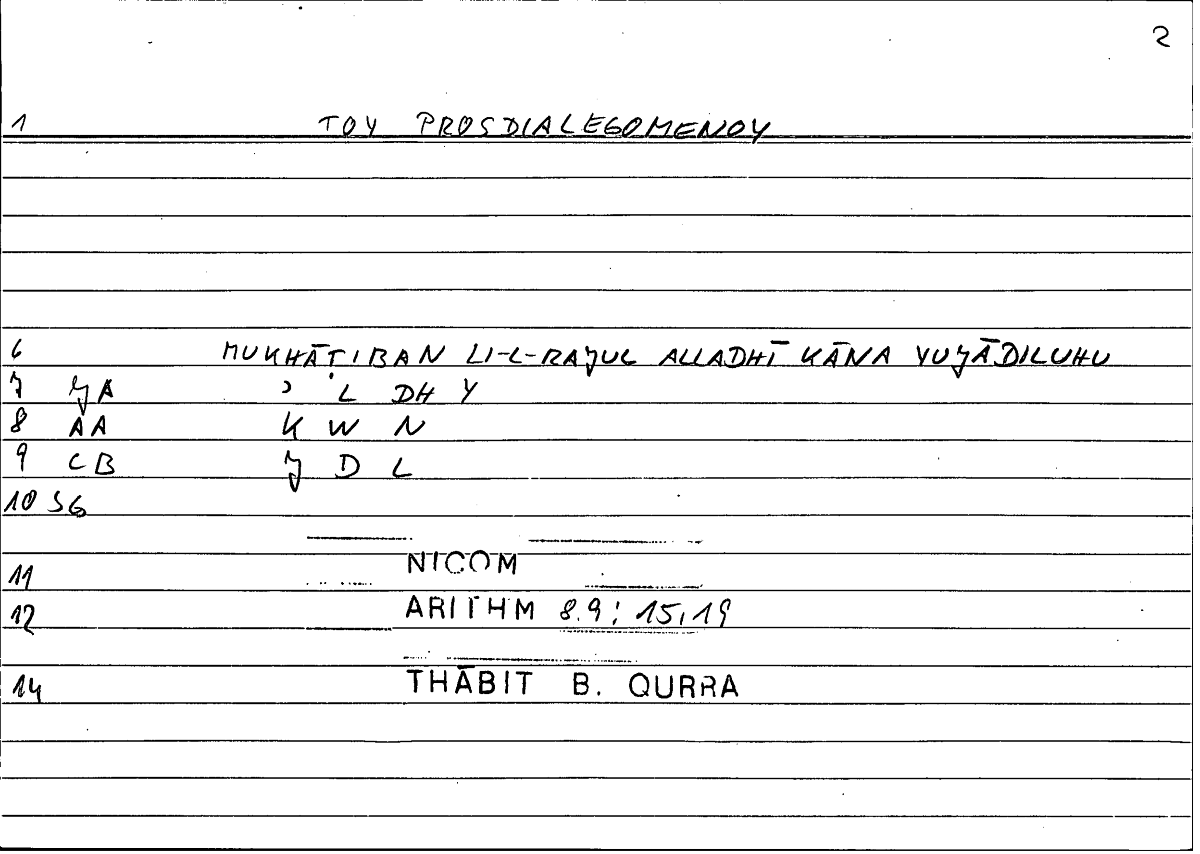 2
1 TOY PROSDIALEGOMENOY
6 MUKHĀṬIBAN LI-L-RAJUL ALLADHĪ KĀNA YUJĀDILUHU
7 JA ʾ L DH Y
8 AA K W N
9 CB J D L
10 SG
11 NICOM
12 ARITHM 8.9; 15,19
14 THĀBIT B. QURRA